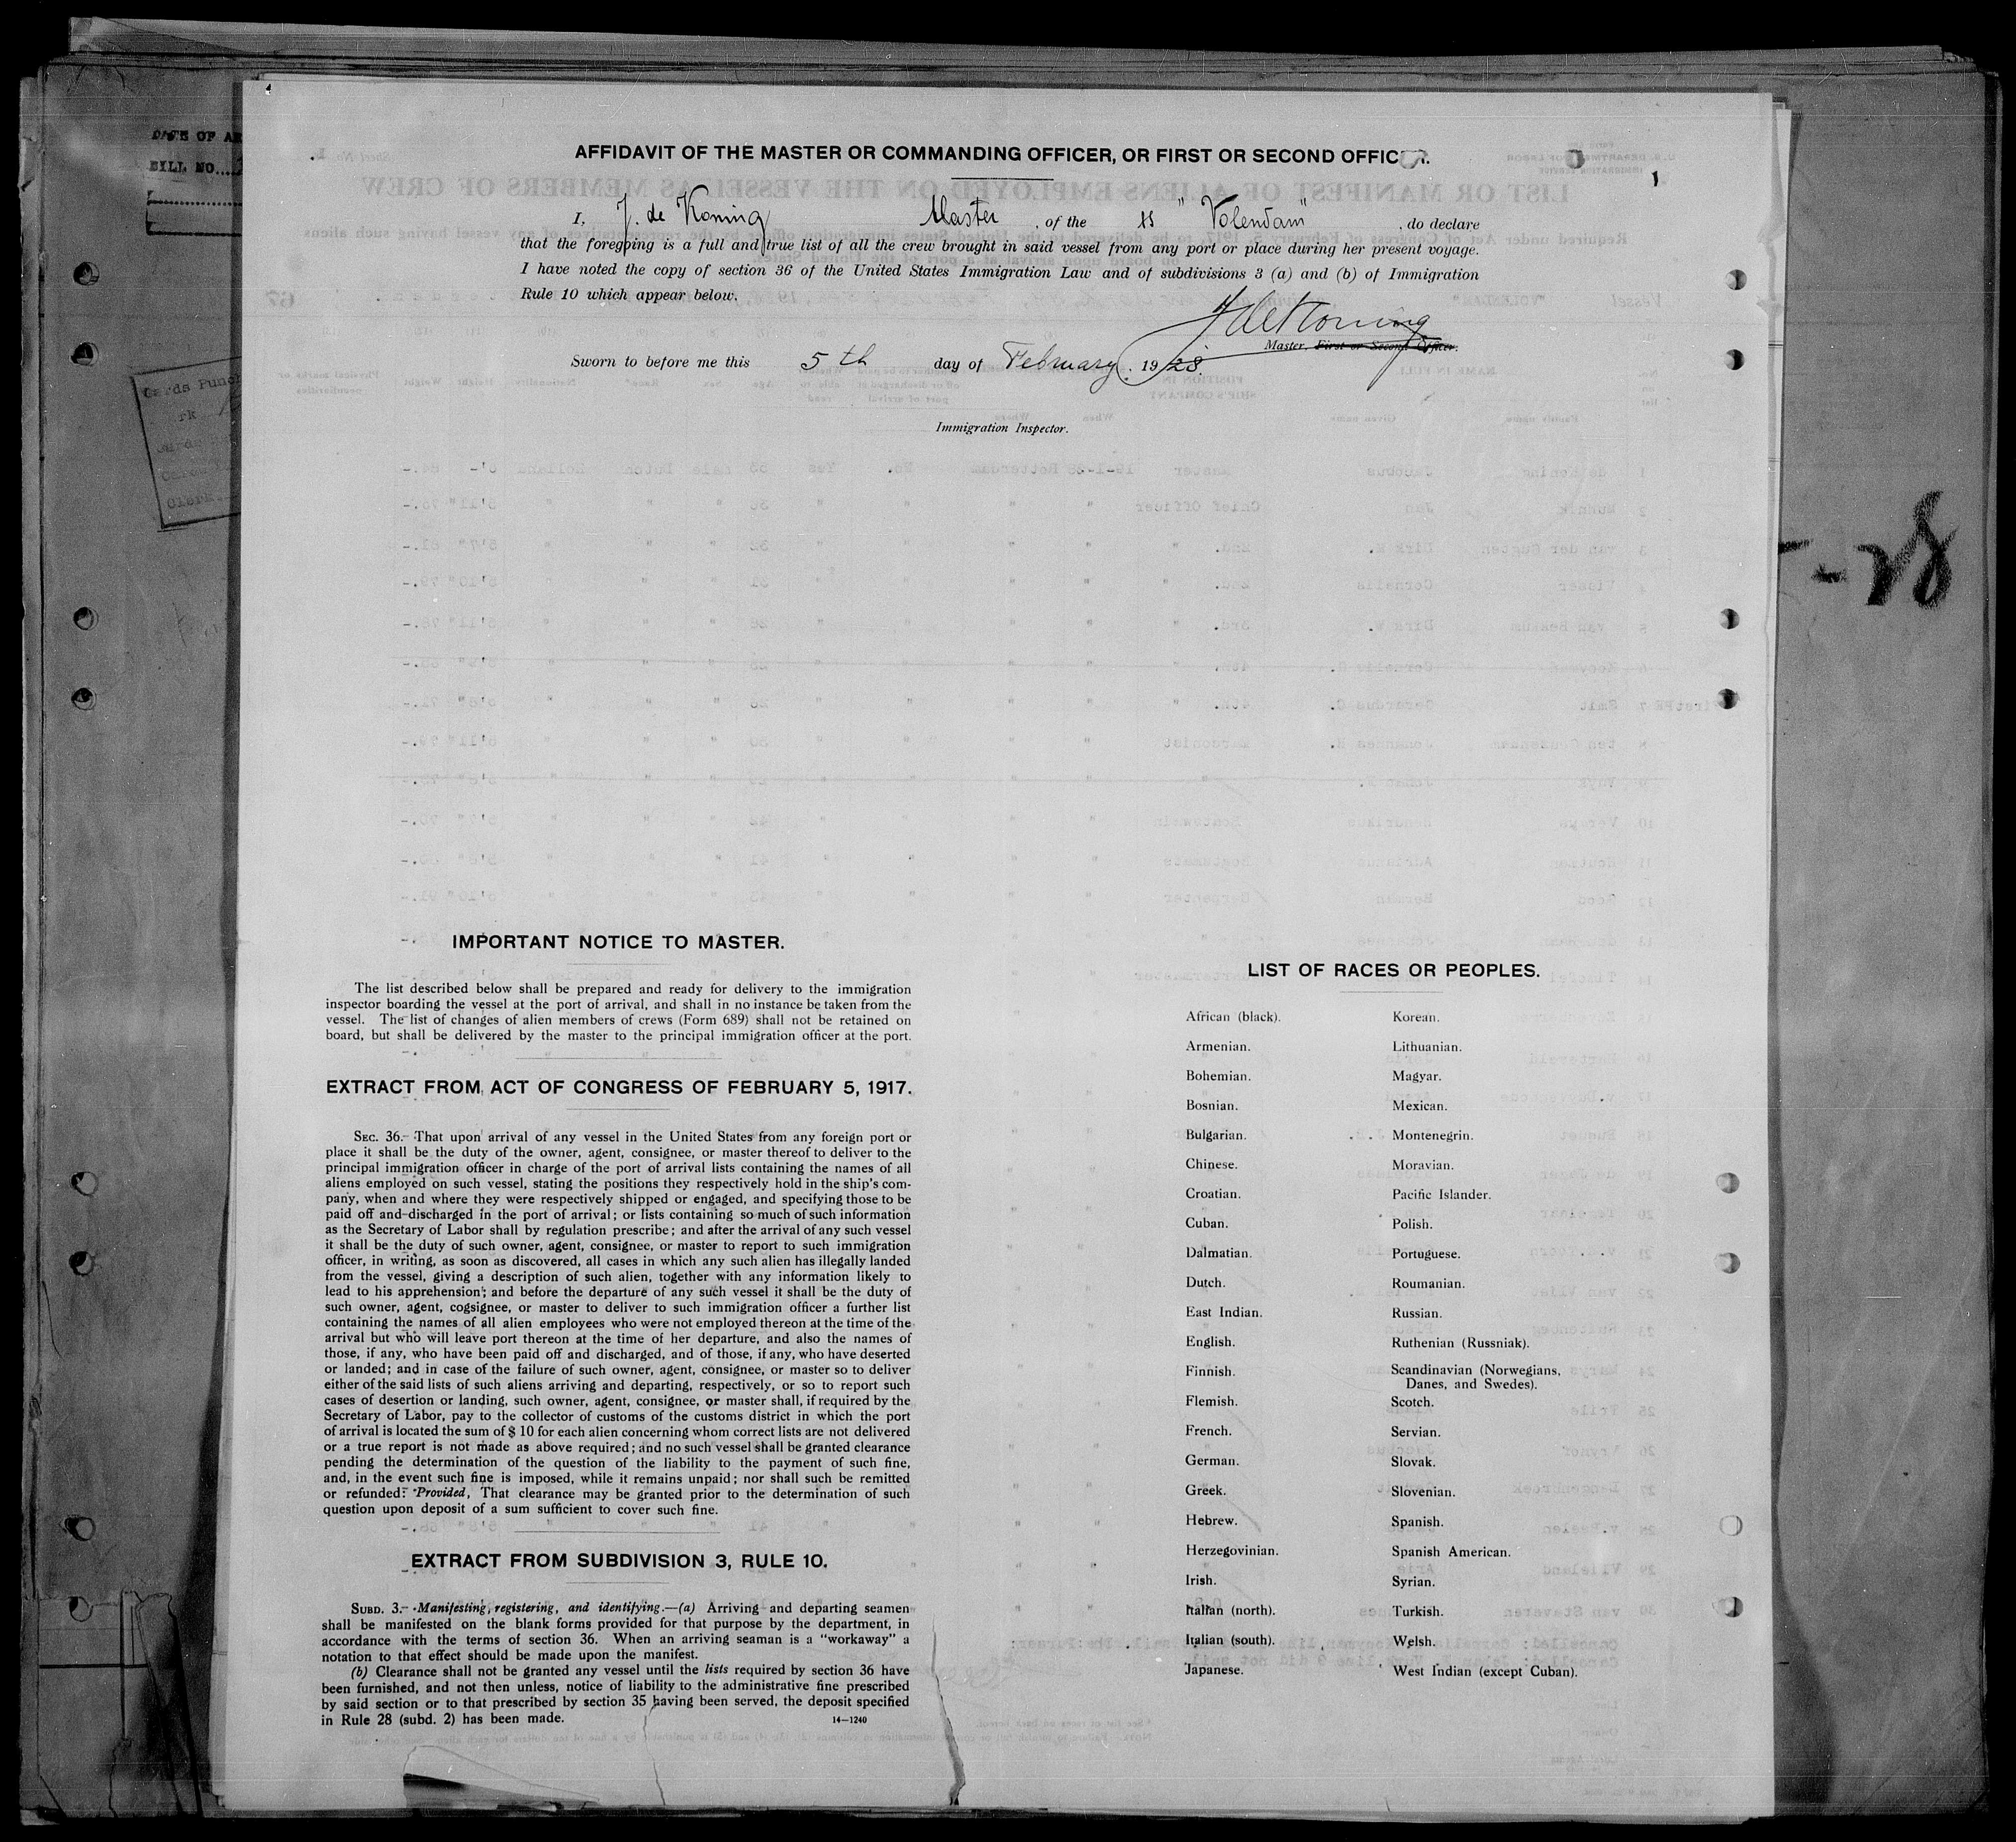 DATE OF
BILL NO....
AFFIDAVIT OF THE MASTER OR COMMANDING OFFICER, OR FIRST OR SECOND OFFICER.
I, J. de Koning Master, of the SS "Volendam", do declare
that the foregoing is a full and true list of all the crew brought in said vessel from any port or place during her present voyage.
I have noted the copy of section 36 of the United States Immigration Law and of subdivisions 3 (a) and (b) of Immigration
Rule 10 which appear below.
J de Koning
Master, First or Second Officer.
Sworn to before me this 5th day of February, 1928.
Immigration Inspector.
Cards Punch
rk
Clerk
-28
IMPORTANT NOTICE TO MASTER.
The list described below shall be prepared and ready for delivery to the immigration
inspector boarding the vessel at the port of arrival, and shall in no instance be taken from the
vessel. The list of changes of alien members of crews (Form 689) shall not be retained on
board, but shall be delivered by the master to the principal immigration officer at the port.
EXTRACT FROM ACT OF CONGRESS OF FEBRUARY 5, 1917.
SEC. 36. That upon arrival of any vessel in the United States from any foreign port or
place it shall be the duty of the owner, agent, consignee, or master thereof to deliver to the
principal immigration officer in charge of the port of arrival lists containing the names of all
aliens employed on such vessel, stating the positions they respectively hold in the ship's com-
pany, when and where they were respectively shipped or engaged, and specifying those to be
paid off and discharged in the port of arrival; or lists containing so much of such information
as the Secretary of Labor shall by regulation prescribe; and after the arrival of any such vessel
it shall be the duty of such owner, agent, consignee, or master to report to such immigration
officer, in writing, as soon as discovered, all cases in which any such alien has illegally landed
from the vessel, giving a description of such alien, together with any information likely to
lead to his apprehension; and before the departure of any such vessel it shall be the duty of
such owner, agent, cogsignee, or master to deliver to such immigration officer a further list
containing the names of all alien employees who were not employed thereon at the time of the
arrival but who will leave port thereon at the time of her departure, and also the names of
those, if any, who have been paid off and discharged, and of those, if any, who have deserted
or landed; and in case of the failure of such owner, agent, consignee, or master so to deliver
either of the said lists of such aliens arriving and departing, respectively, or so to report such
cases of desertion or landing, such owner, agent, consignee, or master shall, if required by the
Secretary of Labor, pay to the collector of customs of the customs district in which the port
of arrival is located the sum of $10 for each alien concerning whom correct lists are not delivered
or a true report is not made as above required; and no such vessel shall be granted clearance
pending the determination of the question of the liability to the payment of such fine,
and, in the event such fine is imposed, while it remains unpaid; nor shall such be remitted
or refunded: Provided, That clearance may be granted prior to the determination of such
question upon deposit of a sum sufficient to cover such fine.
EXTRACT FROM SUBDIVISION 3, RULE 10.
SUBD. 3. Manifesting, registering, and identifying.—(a) Arriving and departing seamen
shall be manifested on the blank forms provided for that purpose by the department, in
accordance with the terms of section 36. When an arriving seaman is a "workaway" a
notation to that effect should be made upon the manifest.
(b) Clearance shall not be granted any vessel until the lists required by section 36 have
been furnished, and not then unless, notice of liability to the administrative fine prescribed
by said section or to that prescribed by section 35 having been served, the deposit specified
in Rule 28 (subd. 2) has been made.
14—1240
LIST OF RACES OR PEOPLES.
African (black).
Armenian.
Bohemian.
Bosnian.
Bulgarian.
Chinese.
Croatian.
Cuban.
Dalmatian.
Dutch.
East Indian.
English.
Finnish.
Flemish.
French.
German.
Greek.
Hebrew.
Herzegovinian.
Irish.
Italian (north).
Italian (south).
Japanese.
Korean.
Lithuanian.
Magyar.
Mexican.
Montenegrin.
Moravian.
Pacific Islander.
Polish.
Portuguese.
Roumanian.
Russian.
Ruthenian (Russniak).
Scandinavian (Norwegians,
Danes, and Swedes).
Scotch.
Servian.
Slovak.
Slovenian.
Spanish.
Spanish American.
Syrian.
Turkish.
Welsh.
West Indian (except Cuban).